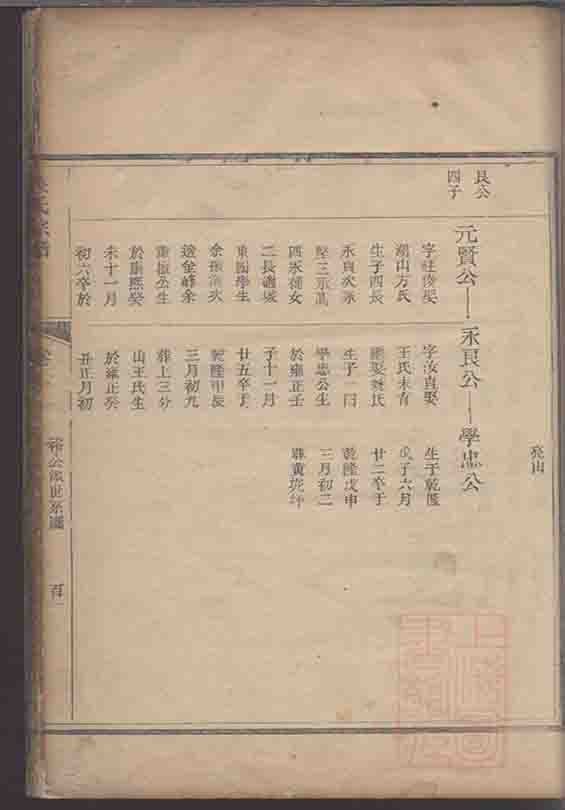 亮山
良公
四子
元賢公
永良公
學忠公
字廷俊娶
潮山方氏
生子四長
永貞次永
堅三永高
四永禎女
二長適城
東園學生
余振流次
適金峰余
重振公生
於康熙癸
未十一月
初六卒於
字汝直娶
王氏未育
繼娶蔡氏
生子一同
學忠公生
於雍正壬
子十一月
廿五卒于
乾隆甲辰
三月初九
葬上三分
山王氏生
於雍正癸
丑正月初
生于乾隆
戊子六月
廿二卒于
乾隆戊申
三月初二
葬黃坑坪
氏宗譜
卷
公派世系圖
百
上海圖書館藏